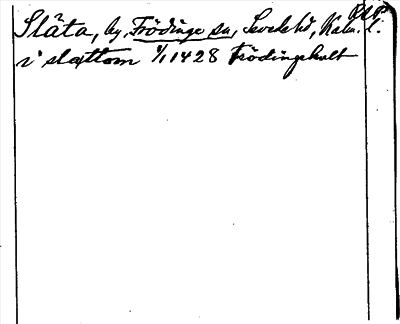 Släta, by, Frödinge sn, Sevede hd, Kalm. l.
i slættom 1/1 1428 Frödingehult